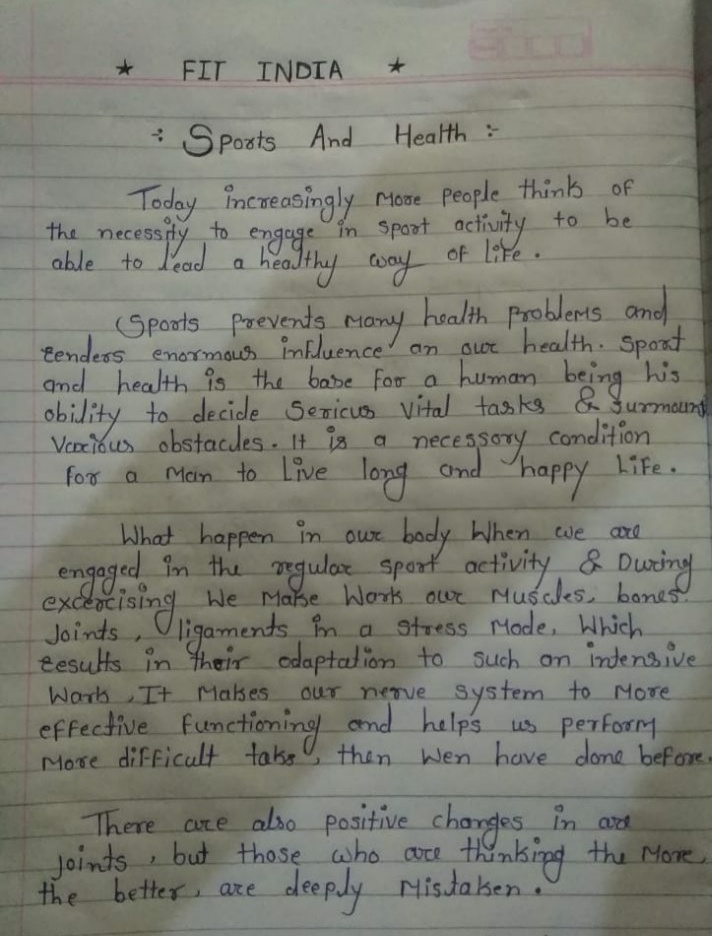 * FIT INDIA *
÷ Sports And Health :-
Today increasingly more people think of
the necessity to engage in sport activity to be
able to lead a healthy way of life.
Sports prevents many health problems and
tenders enormous influence an our health. Sport
and health is the base for a human being his
obility to decide Sericus vital tasks & Surmount
Various obstacles. It is a necessory condition
for a man to live long and happy life.
What happen in our body When we are
engaged in the regular sport activity & During
excercising We Make Work our Muscles, bones
Joints, ligaments in a stress Mode, Which
results in their adaptation to such an intensive
Work, It Makes our nerve system to More
effective functioning and helps us perform
More difficult taks, then Wen have done before.
There are also positive changes in are
joints, but those who are thinking the More,
the better, are deeply Mistaken.